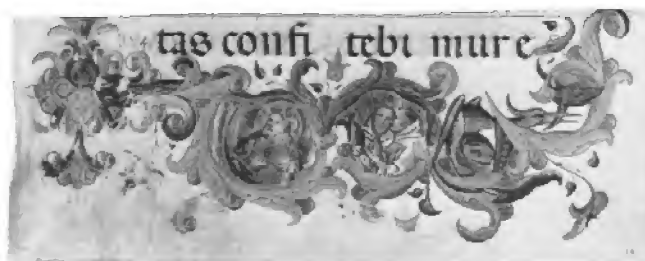 tas confi tebimur e